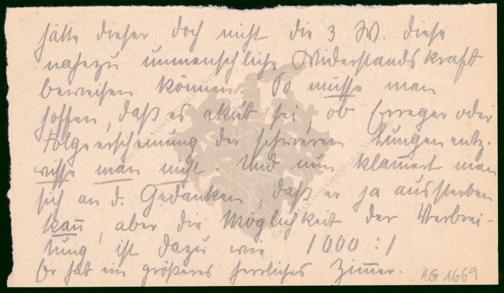 hätte dieser doch nicht die 3 W. diese
nahezu unmenschliche Widerstandskraft
beweisen können. So müsse man
hoffen, daß es akut sei, ob Erreger oder
Folgeerscheinung der schweren Lungenentz.
wisse man nicht. Und nun klammert man
sich an d. Gedanken, daß er ja aussterben
kann, aber die Möglichkeit der Verbrei-
tung ist dazu wie 1000 : 1
Er hat ein größeres herrliches Zimmer.
AG 1669